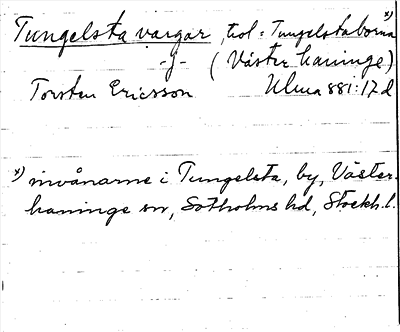 Tungelsta vargar, trol. = Tungelstaborna x)
-j- (Västerhaninge)
Torsten Ericsson Ulma 881:17 d
x) invånarne i Tungelsta, by, Väster-
haninge sn, Sotholms hd, Stockh. l.